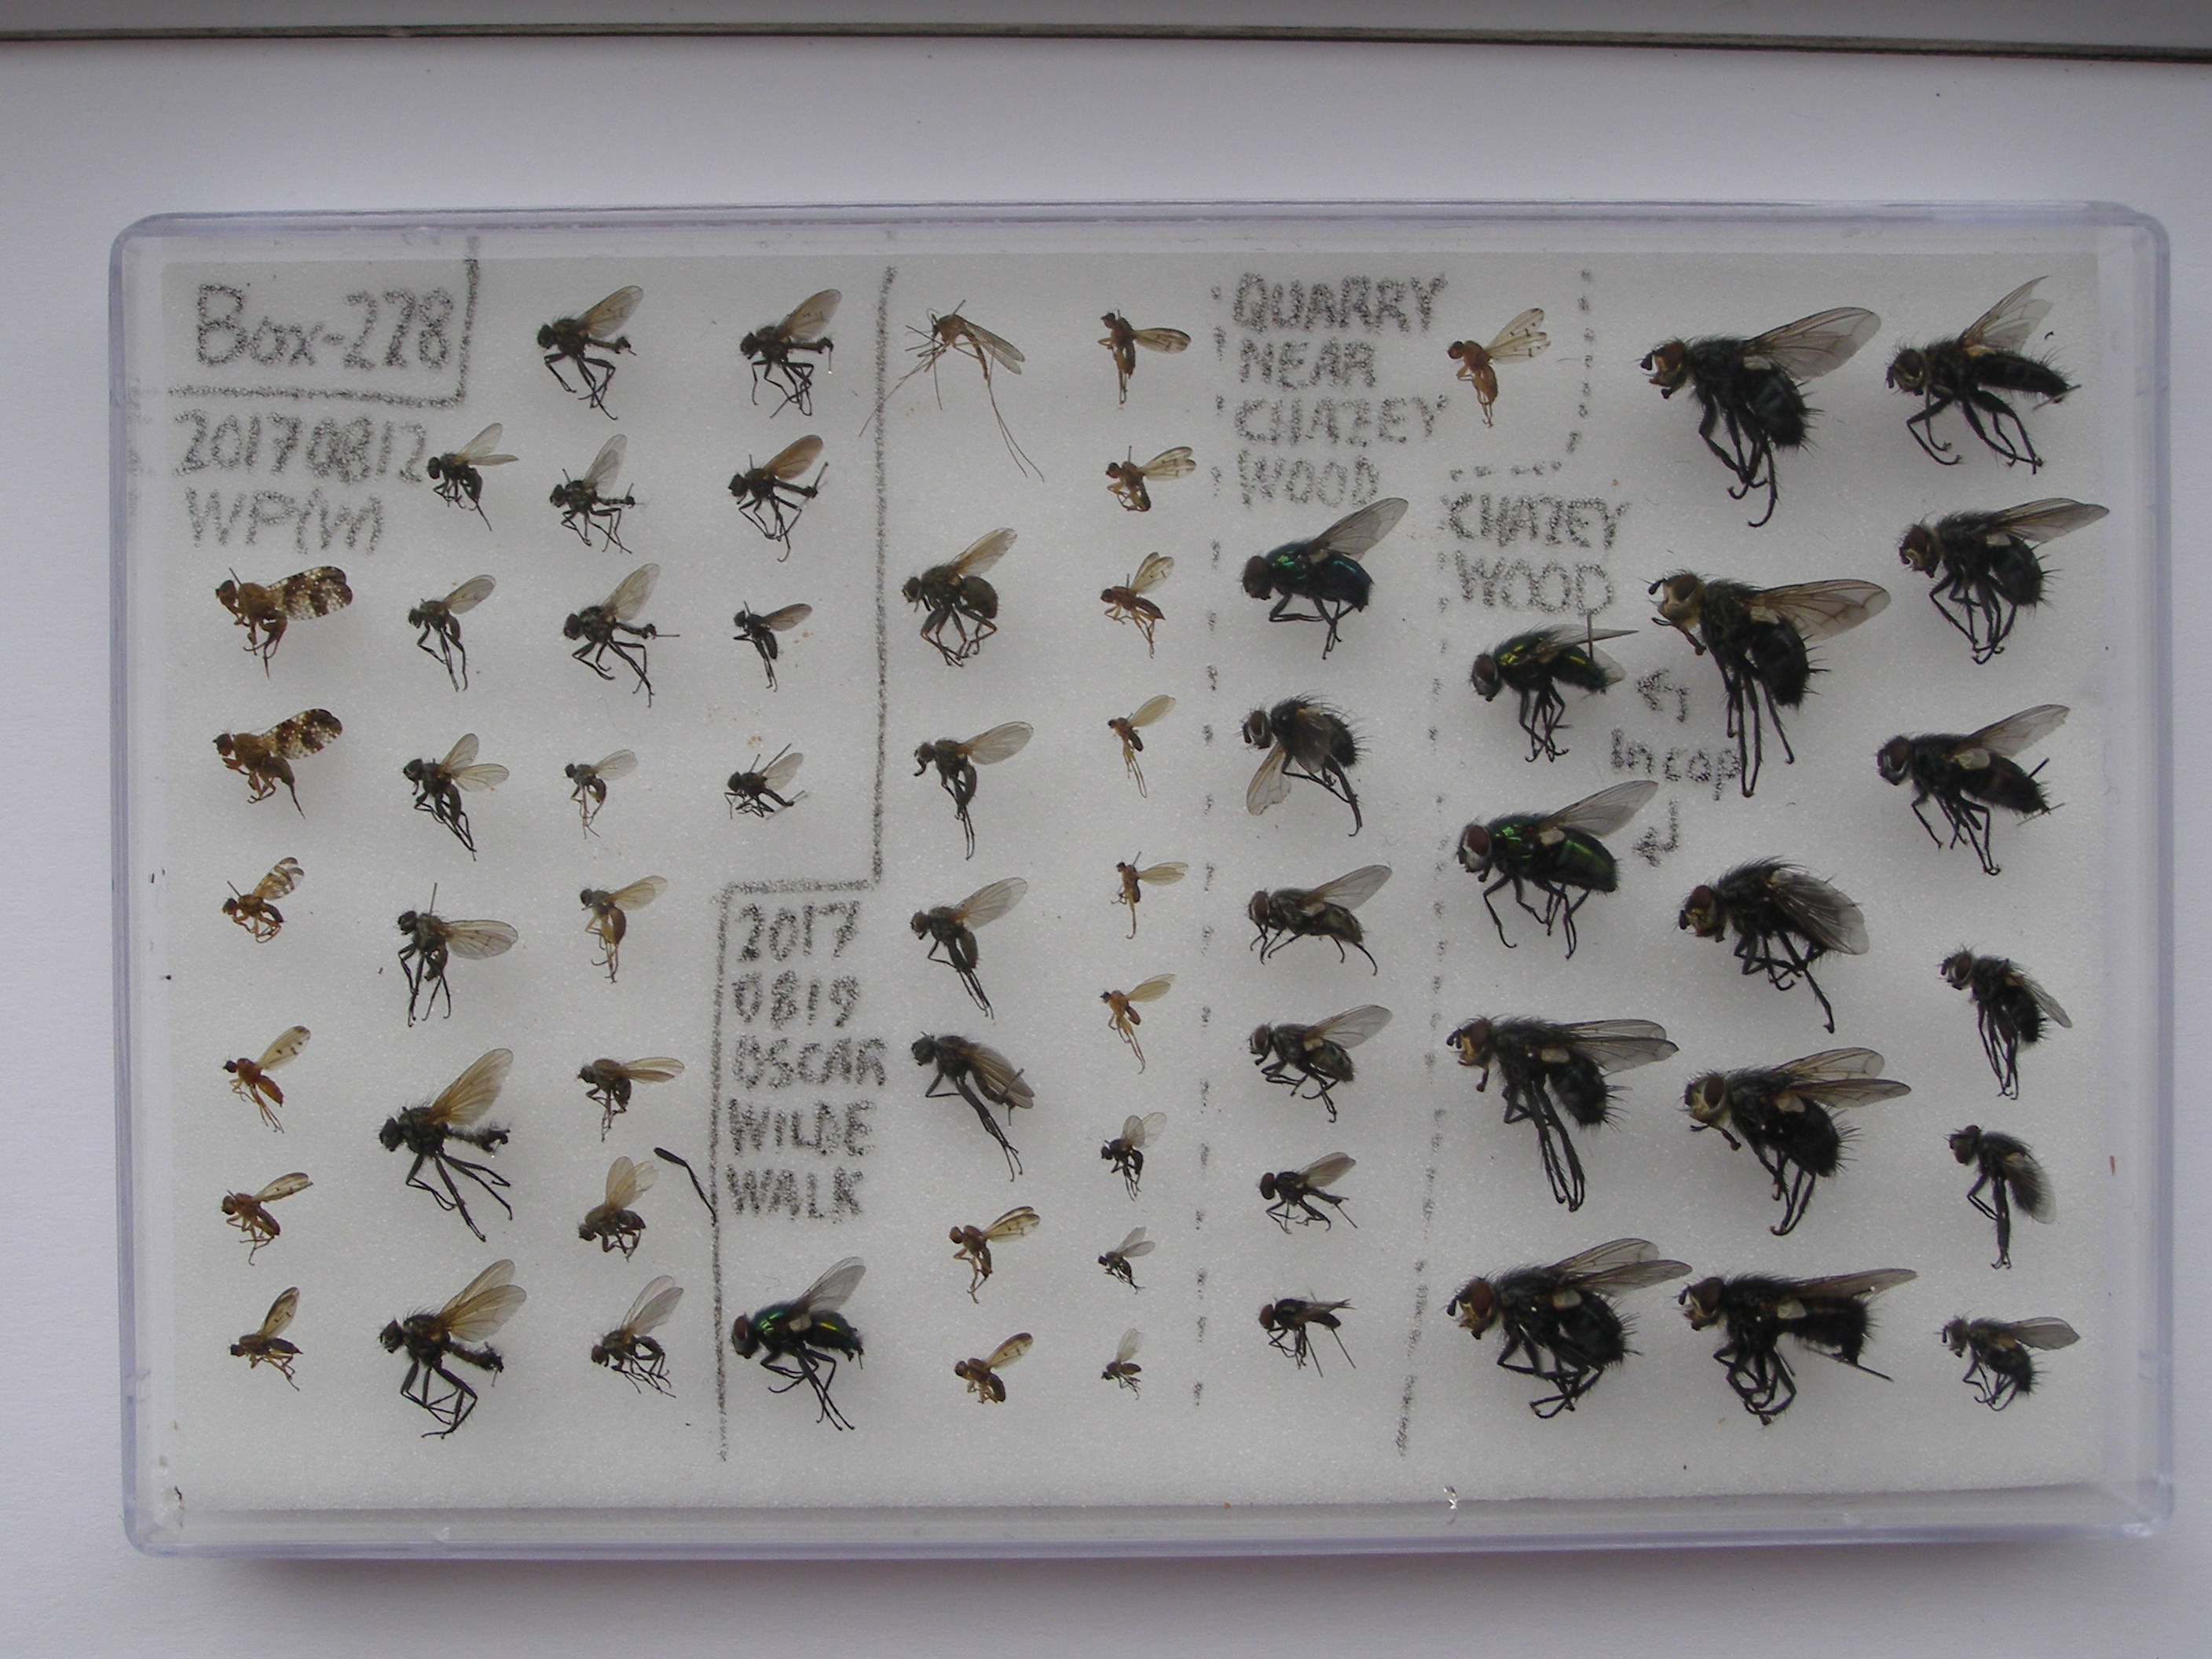 Box-228
20170812
WP(W)
2017
0819
OSCAR
WILDE
WALK
QUARRY
NEAR
CHAZEY
WOOD
CHAZEY
WOOD
In cop